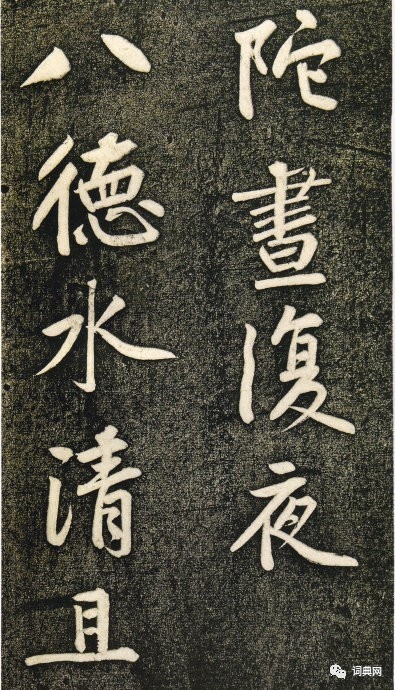 陀晝復夜
八德水清且
词典网